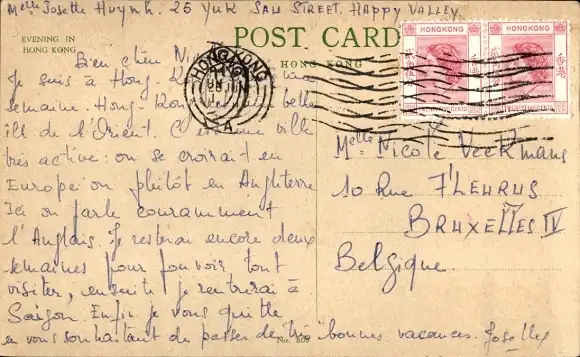 Melle Josette Huynh. 25 Yuk Sau Street. Happy Valley.
EVENING IN
HONG KONG
POST CARD
HONG KONG
HONG KONG
HONGKONG
HONGKONG
香港
香港
Bien chère
Je suis à Hong
semaine. Hong-Kon belle
ille de l'Orient. C une ville
très active: on se croirait en
Europe ou plutôt en Angleterre
Ici on parle couramment
l'Anglais. Je resterai encore deux
semaines pour pouvoir tout
visiter, ensuite je rentrerai à
Saigon. Enfin je vous quitte
en vous souhaitant de passer de très bonnes vacances. Josette
Melle Nicole Veekmans
10 Rue FLEURUS
BRUXELLES IV
Belgique
No. 805